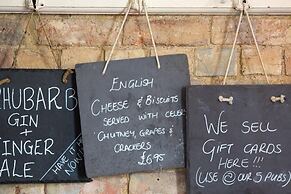 RHUBARB
GIN
+
GINGER
ALE
HAVE
NOW
ENGLISH
CHEESE & BISCUITS
SERVED WITH CELERY
CHUTNEY, GRAPES &
CRACKERS
£6.95
WE SELL
GIFT CARDS
HERE !!!
(USE @ OUR 5 PUBS)